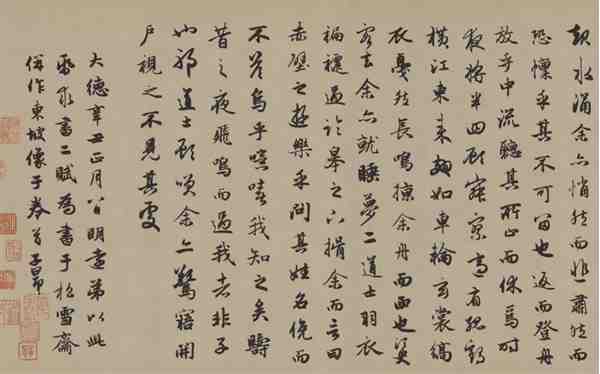 起水涌余亦悄然而悲肅然而
恐懍乎其不可留也返而登舟
放乎中流聽其所止而休焉時
夜將半四顧寂寥適有孤鶴
橫江東來翅如車輪玄裳縞
衣戛然長鳴掠余舟而西也臾
客去余亦就睡夢二道士羽衣
蹁躚過臨皋之下揖余而言曰
赤壁之遊樂乎問其姓名俛而
不答嗚乎噫嘻我知之矣疇
昔之夜飛鳴而過我者非子
也耶道士顧笑余亦驚寤開
戶視之不見其處
大德辛丑正月八日明遠弟以此
紙求書二賦為書于松雪齋
併作東坡像于卷首子昂